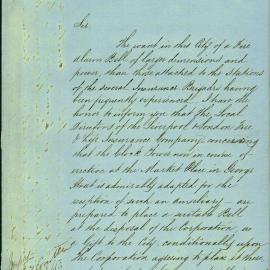 Sir,
The want in this City of a Fire
Alarm Bell of larger dimensions and
power, than those attached to the Stations
of the several Insurance Brigades having
been frequently experienced. I have the
honor to inform you that the Local
Directors of the Liverpool & London Fire
& Life Insurance Company, conceiving
that the Clock Tower now in course of
erection at the Market Place in George
Street is admirably adapted for the
reception of such an auxiliary – are
prepared to place a suitable Bell
at the disposal of the Corporation, as
a Gift to the City, conditionally upon
the Corporation agreeing to place it there